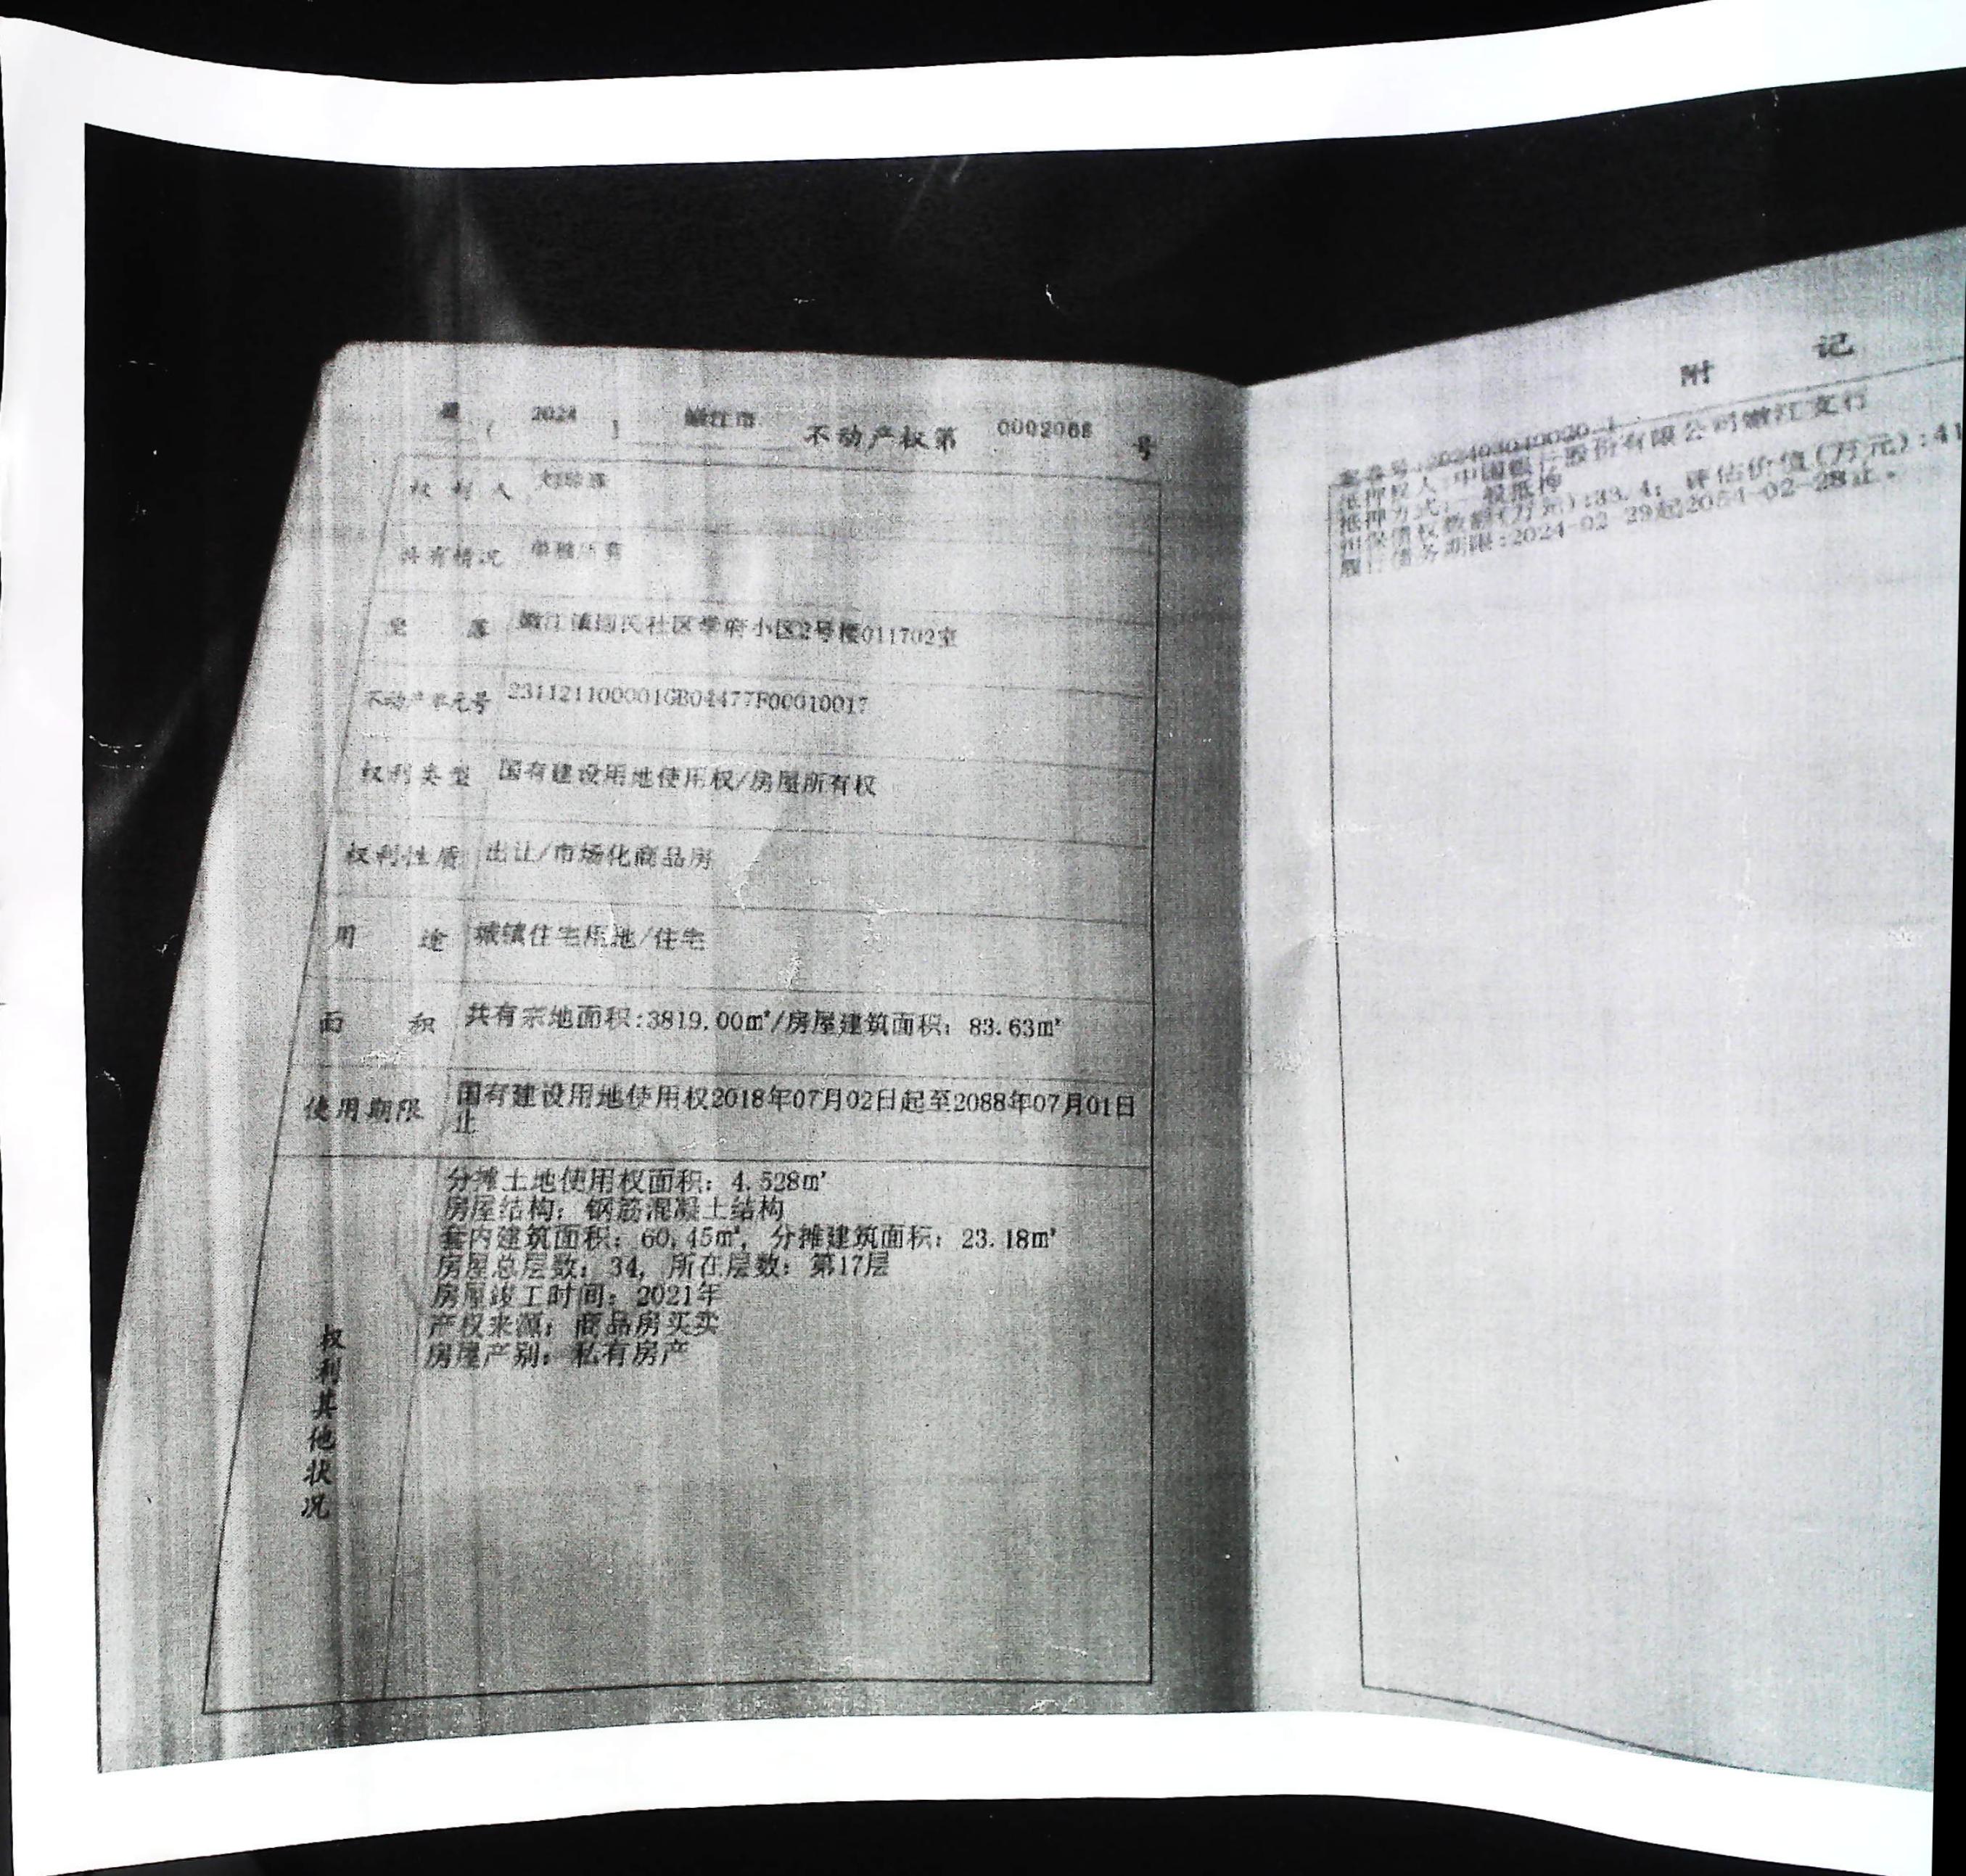 黑 ( 2024 ) 嫩江市 不动产权第 0002068 号
权利人
共有情况 单独所有
坐落 嫩江镇 社区学府小区2号楼011702室
不动产单元号 231121100001GB04477F00010017
权利类型 国有建设用地使用权/房屋所有权
权利性质 出让/市场化商品房
用途 城镇住宅用地/住宅
面积 共有宗地面积:3819.00㎡/房屋建筑面积：83.63㎡
使用期限 国有建设用地使用权2018年07月02日起至2088年07月01日
止
权利其他状况
分摊土地使用权面积：4.528㎡
房屋结构：钢筋混凝土结构
套内建筑面积：60.45㎡，分摊建筑面积：23.18㎡
房屋总层数：34，所在层数：第17层
房屋竣工时间：2021年
产权来源：商品房买卖
房屋产别：私有房产
附记
案卷号:202403040020-1
抵押权人:中国银行股份有限公司嫩江支行
抵押方式:一般抵押
担保债权数额(万元):33.4；评估价值(万元):41
履行债务期限:2024-02-29起2054-02-28止。